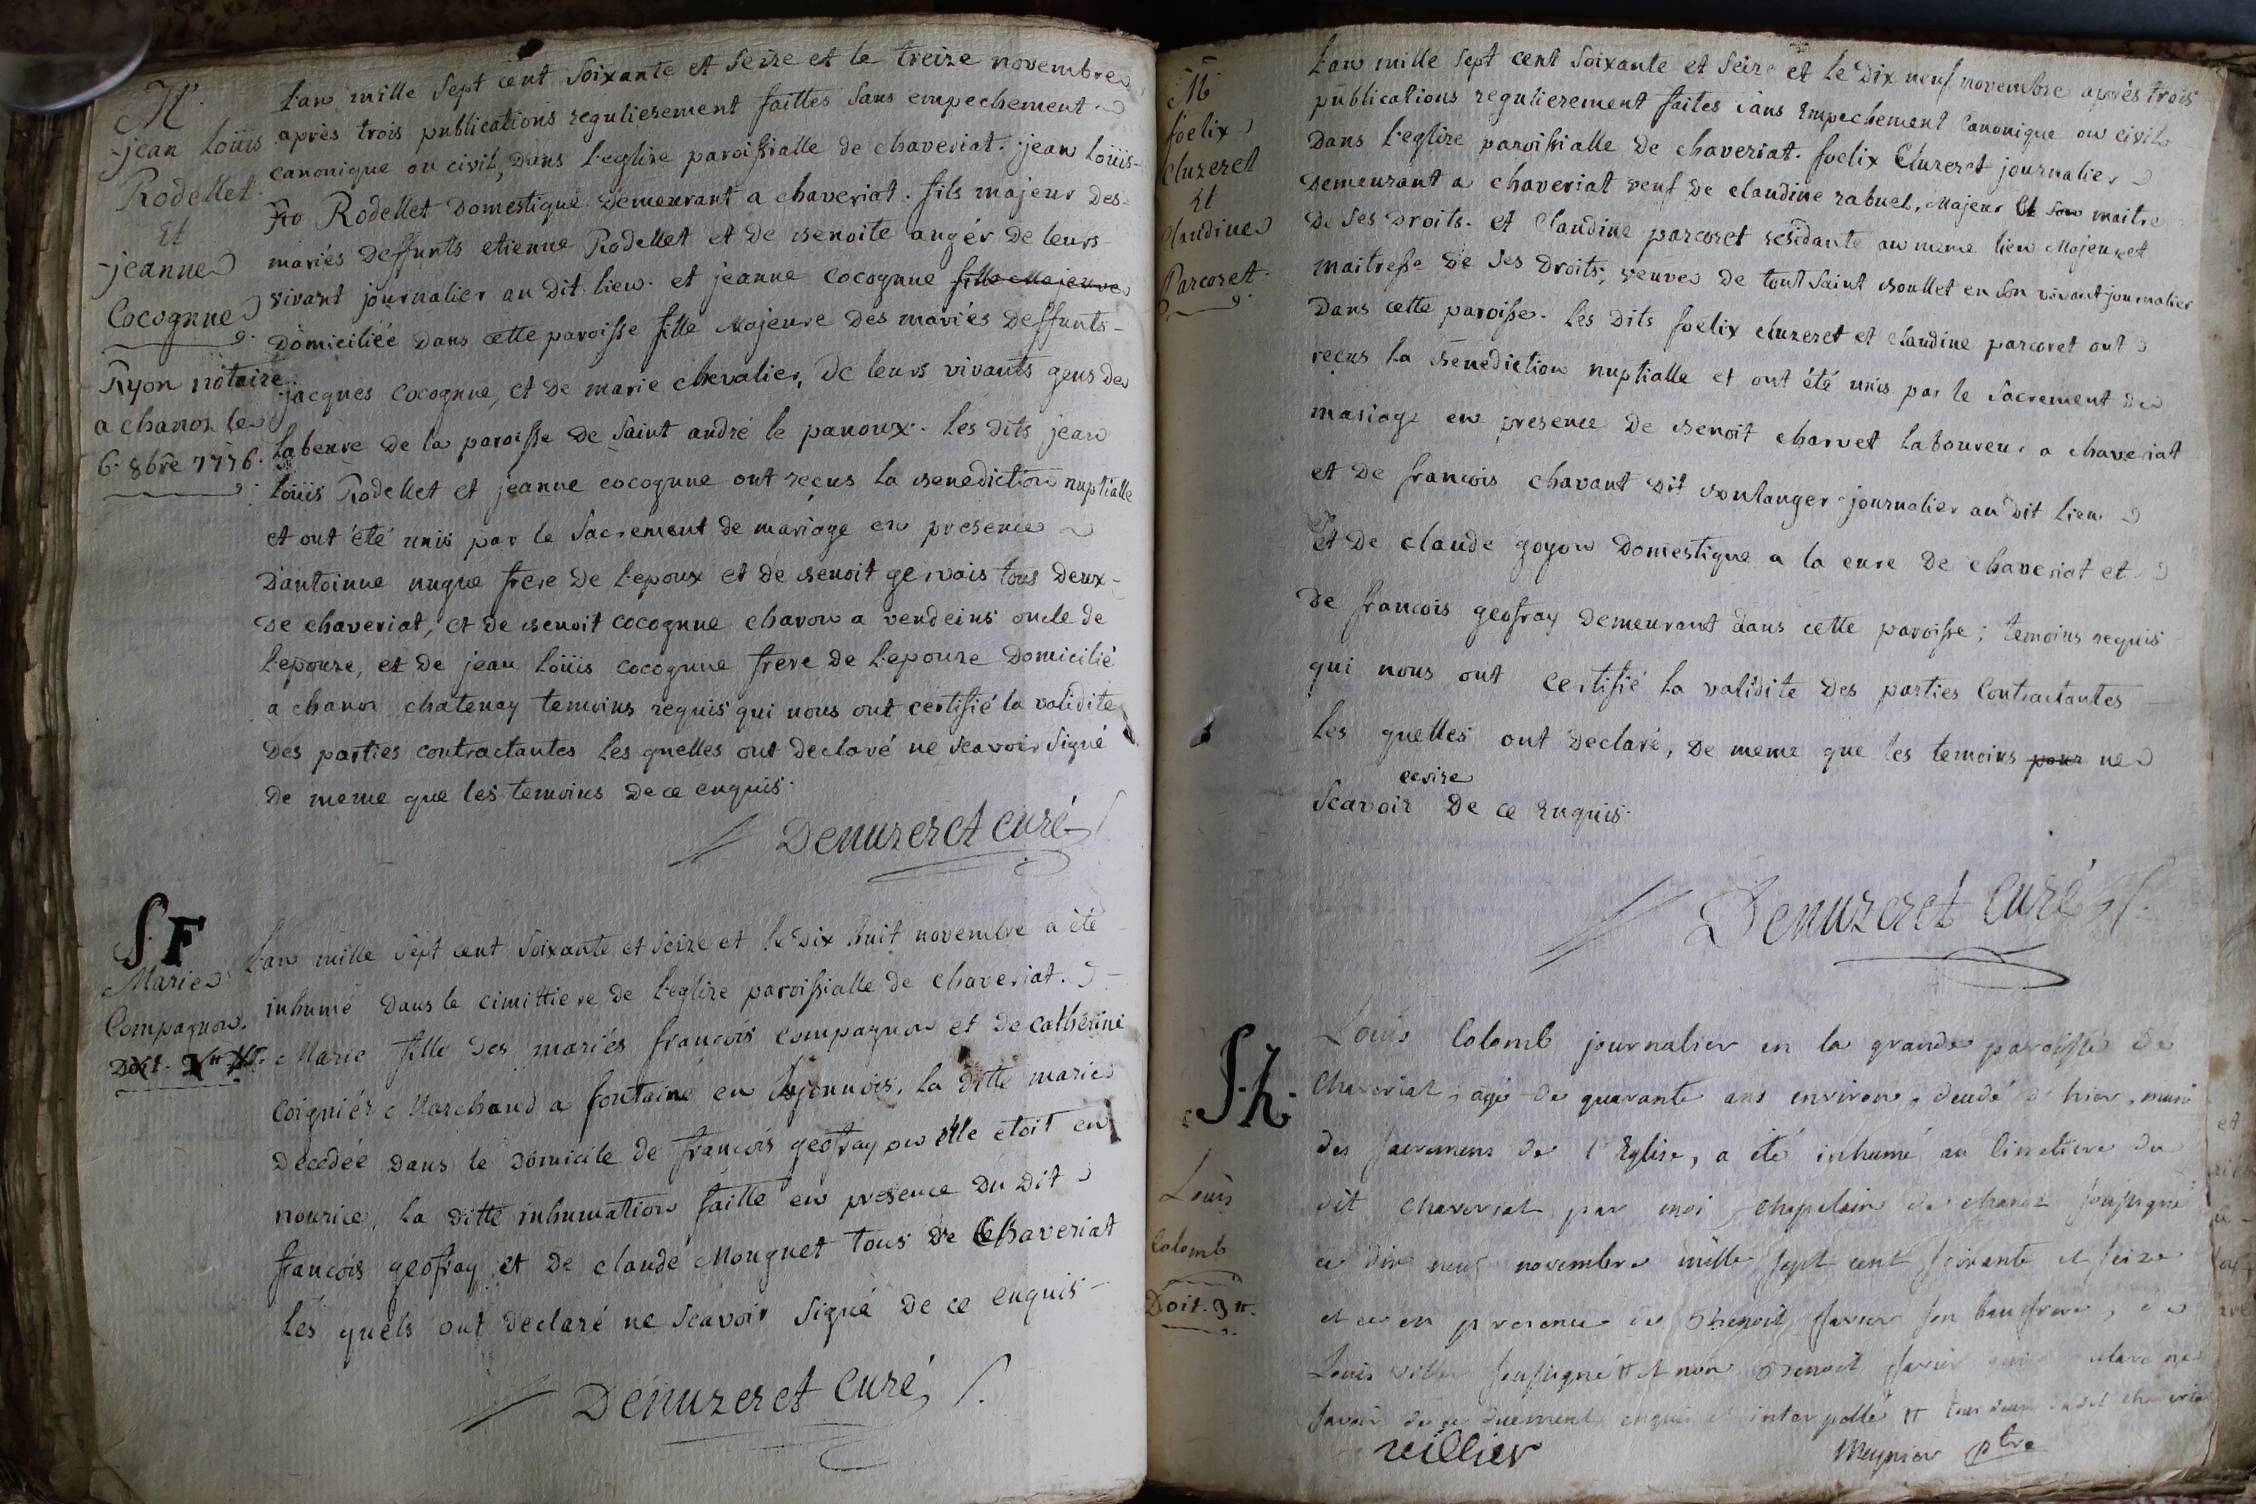 M.
jean Loüis
Rodellet.
Et
jeanne
Cocognne
Ryon notaire
a chanoz le
6. 8bre 1776.
L'an mille sept cent soixante et seize et le treize novembre
après trois publications regulierement faittes sans empechement
canonique ou civil, dans l'eglize paroissialle de chaveriat. jean Loüis
Rodellet Domestique Demeurant a chaveriat. fils majeur des
mariés deffunts etienne Rodellet et de Benoite angér de leurs
vivant journalier au dit lieu. et jeanne cocognne fille Majeure
Domiciliéé dans cette paroisse fille Majeure des mariés deffunts
jacques cocognne, et de marie chevalier, de leurs vivants gens de
Labeure de la paroisse de saint andré le panoux. Les dits jean
Loüis Rodellet et jeanne cocognne ont reçus la Benediction nuptialle
et ont été unis par le sacrement de mariage en presence
D'antoinne nugue frere de l'epoux et de Benoit gervais tous deux
de chaveriat, et de Benoit cocognne charon a vendeins oncle de
L'epouze, et de jean Loüis cocognne frere de l'epouze Domicilié
a chanoz chatenay temoins requis qui nous ont certifié la validite
des parties contractantes les quelles ont declaré ne scavoir signé
de meme que les temoins de ce enquis.
Denuzeret curé
S. F
Marie
Compagnon.
Doit.
L'an mille sept cent soixante et seize et le dix huit novembre a été
inhumé dans le cimittiere de l'eglize paroissialle de chaveriat.
Marie fille des mariés francois compagnon et de catherine
Coigniér Marchand a fontaine en Lyonnois. La ditte marie
decedée dans le domicile de francois geofray ou elle etoit en
nourice, la ditte inhumation faitte en presence du dit
francois geofray et de claude Monguet tous de Chaveriat
Les quels ont declaré ne scavoir signé de ce enquis
Denuzeret curé
M.
foelix
cluzeret
Et
Claudine
Parcoret.
L'an mille sept cent soixante et seize et le dix neuf novembre après trois
publications regulierement faites sans Empechement Canonique ou civil
Dans l'eglize paroissialle de chaveriat. foelix Cluzeret journalier
Demeurant a chaveriat veuf de claudine rabuel, Majeur Et son maitre
De ses Droits. et Claudine parcoret residante au meme lieu Majeure et
maitresse de ses Droits; veuve de tout saint Boullet en son vivant journalier
Dans cette paroisse. Les dits foelix cluzeret et claudine parcoret ont
reçus la Benediction nuptialle et ont été unis par le sacrement de
mariage en presence de Benoit charvet Laboureur a chaveriat
et de francois chavant dit Boulanger journalier au dit Lieu
Et De claude goyon Domestique a la cure de chaveriat et
de francois geofray demeurant dans cette paroisse; temoins requis
qui nous ont certifié la validite des parties Contractantes
Les quelles ont declaré, de meme que les temoins pour ne
ecrire
scavoir de ce Enquis.
Denuzeret Curé
S. h.
Louis
Colomb
Doit. 3 tt.
Louis Colomb journalier en la grande paroisse de
Chaveriat, agé de quarante ans environ, decedé d'hier, muni
des sacremens de l'Eglise, a été inhumé au Cimetiere du
dit chaveriat par moi chapelain de chanoz soussigné
ce dix neuf novembre mille sept cent soixante et seize
et ce en presence de Benoit Favier son beaufrere, et de
Louis villier soussigné tt et non Benoit Favier declaré ne
savoir de ce duement enquis et interpellé tt tous deux dudit chaveriat
villier
Meynier ptre